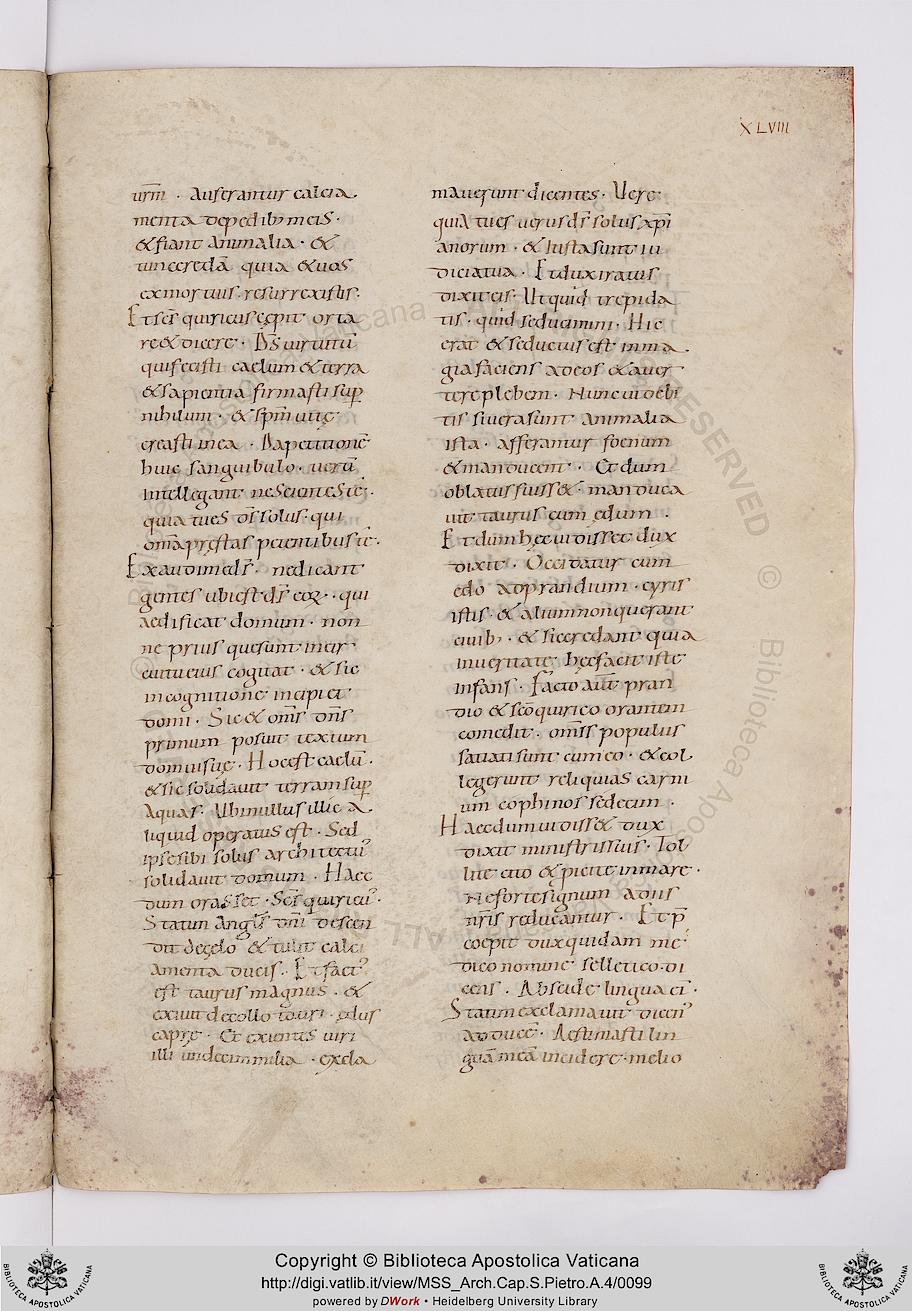 XLVIII
urm̄ · Auferantur calcia
menta depedib; meis ·
& fiant animalia · &
tunc credā quia & uos
exmortuis resurrexistis ·
Et scs̄ quiricus cępit ora
re & dicere · Ds̄ uirtutū
quifecisti caelum & terrā
& sapientia firmasti sup̄
nihilum · & sp̄m uitę
creasti in ea · Da petitionē
huic sanguibulo · uerū
intellegant nescientes te ·
quia tu es ds̄ solus · qui
omā pręstas petentibus te ·
Exaudi me ds̄ · ne dicant
gentes ubi est ds̄ eoꝝ · qui
aedificat domum · non
ne prius quesunt in cir
cuitu eius cogitat · & sic
incognitione incipiet
domi · Sic & oms̄ dn̄s
primum posuit textum
domui suę · Hoc est caelū ·
& sic solidauit terram sup̄
aquas · Ubi nullus illic a
liquid operatus est · Sed
ipse sibi solus architectū
solidauit domum · Haec
dum orasset · Scs̄ quiricus ·
Statim angls̄ dn̄i descen
dit de cęlo & tulit calci
amenta ducis · Et factus
est taurus magnus · &
exiuit de collo tauri · edus
caprę · Et exientes uiri
illi undecim milia · excla
mauerunt dicentes · Vere
quia tu es uerus ds̄ solus xp̄i
anorum · & iusta sunt iu
dicia tua · Et dux iratus
dixit eis · Ut quid trepida
tis · quid seducimini · Hic
erat & seductus est in ma
gia faciens ad eos & auer
tere plebem · Nunc uidebi
tis si uera sunt animalia
ista · afferantur foenum
& manducent · Et dum
oblatus fuiss& · manduca
uit taurus cum ędum ·
Et dum hęc uidisset dux
dixit · Occidatur cum
edo ad prandium · cyris
istis · & alium non querant
cuib; · & sic credant quia
in ueritate hęc facit iste
infans · Facto aut̄ pran
dio & scō quirico orantem
comedit · omīs populus
satiati sunt cum eo · & col
legerunt reliquias carni
um cophinos sedecim ·
Haec dum uidiss& dux
dixit ministris suis · Tol
lite cito & picite in mare ·
Ne forte signum a diis
nr̄is seducamur · Et p̄
coepit dux quidam me
dico nomine selletico · di
cens · Abscide lingua ei ·
Statim exclamauit dicens
ad duce · Aestimasti lin
guā meā incidere · melio
Copyright © Biblioteca Apostolica Vaticana
http://digi.vatlib.it/view/MSS_Arch.Cap.S.Pietro.A.4/0099
powered by DWork · Heidelberg University Library